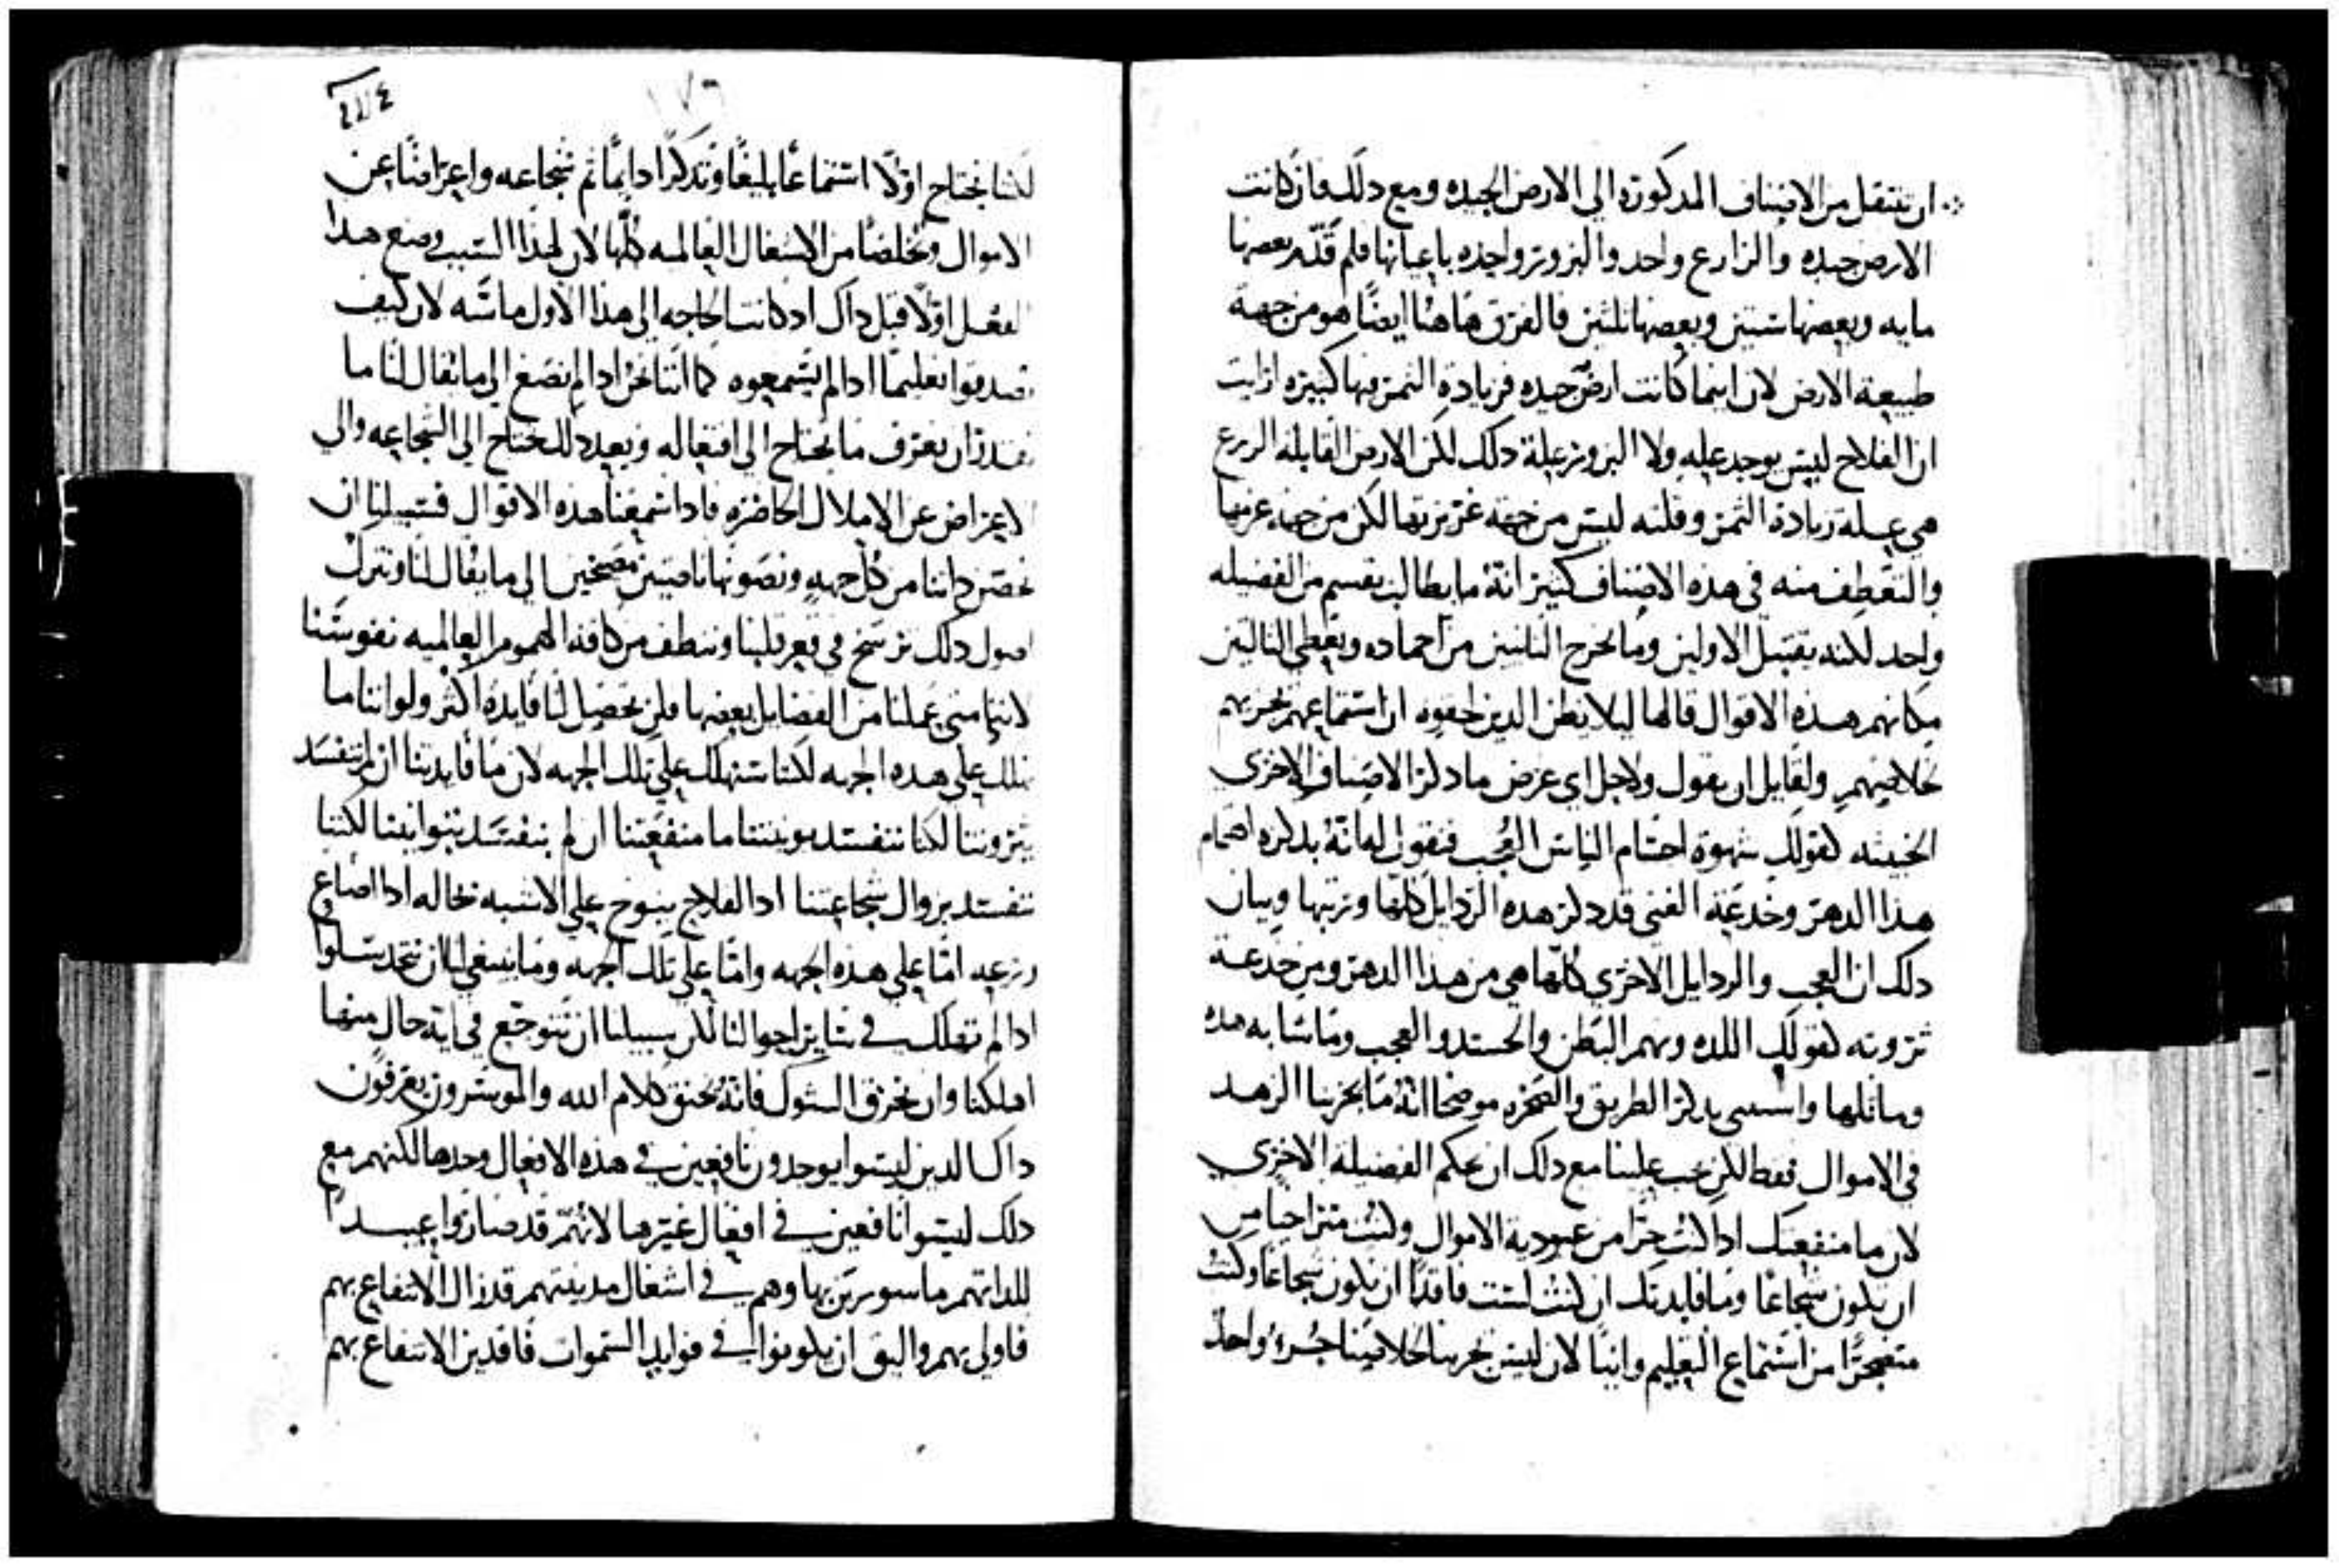 ان ننتقل من الاصناف المدكورة الي الارض الجيده ومع دلك فان كانت
الارض جيده والزارع واحد والبزور واحده باعيانها فلم قدم بعضها
مايه وبعضها ستين وبعضها ثلثين فالفرق هاهنا ايضًا هو من جهة
طبيعة الارض لان اينما كانت ارض جيده فزيادة الثمر فيها كبيره ارايت
ان الفلاح ليس يوجد عله ولا البزور علة دلك لكن الارض القابلة الزرع
هي علة زيادة الثمر وقلته ليس من جهة غريزتها لكن من جهة عزمها
والتعطف منه في هذه الاصناف كبير انه ما يطالب بقسم من الفضيله
واحد لكنه يقتبل الاولين وما يخرج الثانيين من احماده ويعطي الثالثين
مكانهم هذه الاقوال قالها ليلا يظن الدين لحقوه ان استماعهم يجزيهم
لخلاصهم ولقايل ان يقول ولاجل اي غرض ما دكر الاصناف الاخري
الخبيثه كقولك شهوة اجسام الناس العجب فنقول له انه بدكره اهتمام
هذا الدهر وخدعة الغني قد دكر هده الردايل كلها ورتبها وبيان
دلك ان العجب والردايل الاخري كلها هي من هذا الدهر ومن خدعة
ثروته كقولك اللده ونهم البطن والحسد والعجب وما شابه هده
وماثلها واستثنى بدكر الطريق والصخره موضحا انه ما يجزينا الزهد
في الاموال فقط لكن يجب علينا مع دلك ان نحكم الفضيلة الاخري
لان ما منفعتك ادا كنت حرًا من عبودية الاموال وكنت متراخيا من
ان تكون شجاعًا وما فايدتك ان كنت لست فاقدًا ان تكون شجاعًا وكنت
متضجرًا من استماع التعليم وانيًا لان ليس يجزينا لخلاصنا جزء واحد
٤٢٤
١٧٦
لكننا نحتاج اولًا استماعًا بليغًا وتدكرًا دايمًا ثم شجاعه واعراضًا عن
الاموال وتخلصًا من الاشغال العالميه كلها لان لهذا السبب وضع هدا
الفعل اولًا قبل داك اد كانت الحاجه الي هذا الاول ماسّه لان كيف
يصدقوا تعليمًا ادا لم يسمعوه كما اننا نحن ادا لم نصغ الي ما يقال لنا ما
نقدر ان نعرف ما نحتاج الي افتعاله وبعد دلك نحتاج الي الشجاعه والي
الاعراض عن الاملال الحاضره فادا سمعنا هده الاقوال فسبيلنا ان
نحصّن داتنا من كل جهةٍ ونصونها ناصتين مصخين الي ما يقال لنا ونترك
اصول دلك ترسخ في قعر قلبنا وننظف من كافة الهموم العالميه نفوسنا
لاننا متى عملنا من الفضايل بعضها فلن تحصل لنا فايدة اكثر ولو اننا ما
نهلك علي هده الجهه لكننا سنهلك علي تلك الجهه لان ما فايدتنا ان لم نفسد
بثروتنا لكننا نفسد بونيتنا ما منفعتنا ان لم نفسد بتوانينا لكننا
نفسد بزوال شجاعتنا ادا الفلاح ينوح علي الاشبه بحاله ادا اضاع
زرعه امّا علي هذه الجهه وامّا علي تلك الجهه وما ينبغي لنا ان نتخد سلوًا
ادا لم نهلك في ساير احوالنا لكن سبيلنا ان نتوجع في اية حال منها
اهلكنا وان نحرق الشوك فانه يخنق كلام الله والموسرون يعرفون
داك الدين ليسوا يوجدون نافعين في هذه الافعال وحدها لكنهم مع
دلك ليسوا نافعين في افعال غيرها لانهم قد صاروا عبيدًا
للداتهم ماسورين بها وهم في اشغال مدينتهم قد زال الانتفاع بهم
فاولى بهم واليق ان يكونوا في فوايد السموات فاقدين الانتفاع بهم